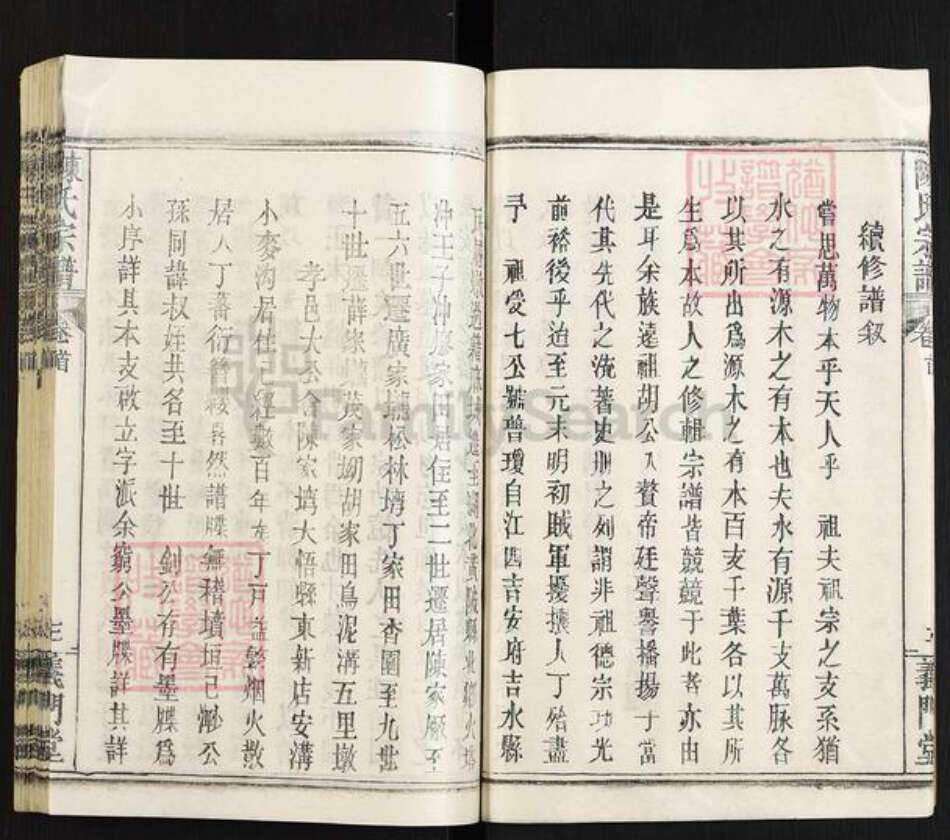 續修譜叙
嘗思萬物本乎天人乎 祖夫祖宗之支系猶
水之有源木之有本也夫水有源千支萬脉各
以其所出爲源木之有本百支千葉各以其所
生爲本故人之修輯宗譜皆兢兢于此者亦由
是耳余族遠祖胡公入贅帝廷聲譽播揚于當
代其先代之流著史册之列謂非祖德宗功光
前裕後乎迨至元末明初賊軍擾攘人丁殆盡
予 祖受七公諱普瓊自江西吉安府吉水縣
冲王子冲廖家田居住至二世遷居陳家廠至
五六世遷廣家 松林塆丁家田杏園至九世
十世遷薛家 茂家坳胡家田烏泥溝五里墩
孝邑大公會陳家塆大悟驛東新店安溝
小麥沟居住經數百年 丁戸益繁烟火散
居人丁蕃衍 然譜牒無稽墳垣已 公
孫同諱叔姪共名至十世 釗公存有墨牒爲
小序詳其本支啟立字派余窮公墨牒詳其詳
陳氏宗譜
卷首
三 義門堂
陳氏宗譜
卷首
義門堂
FamilySearch